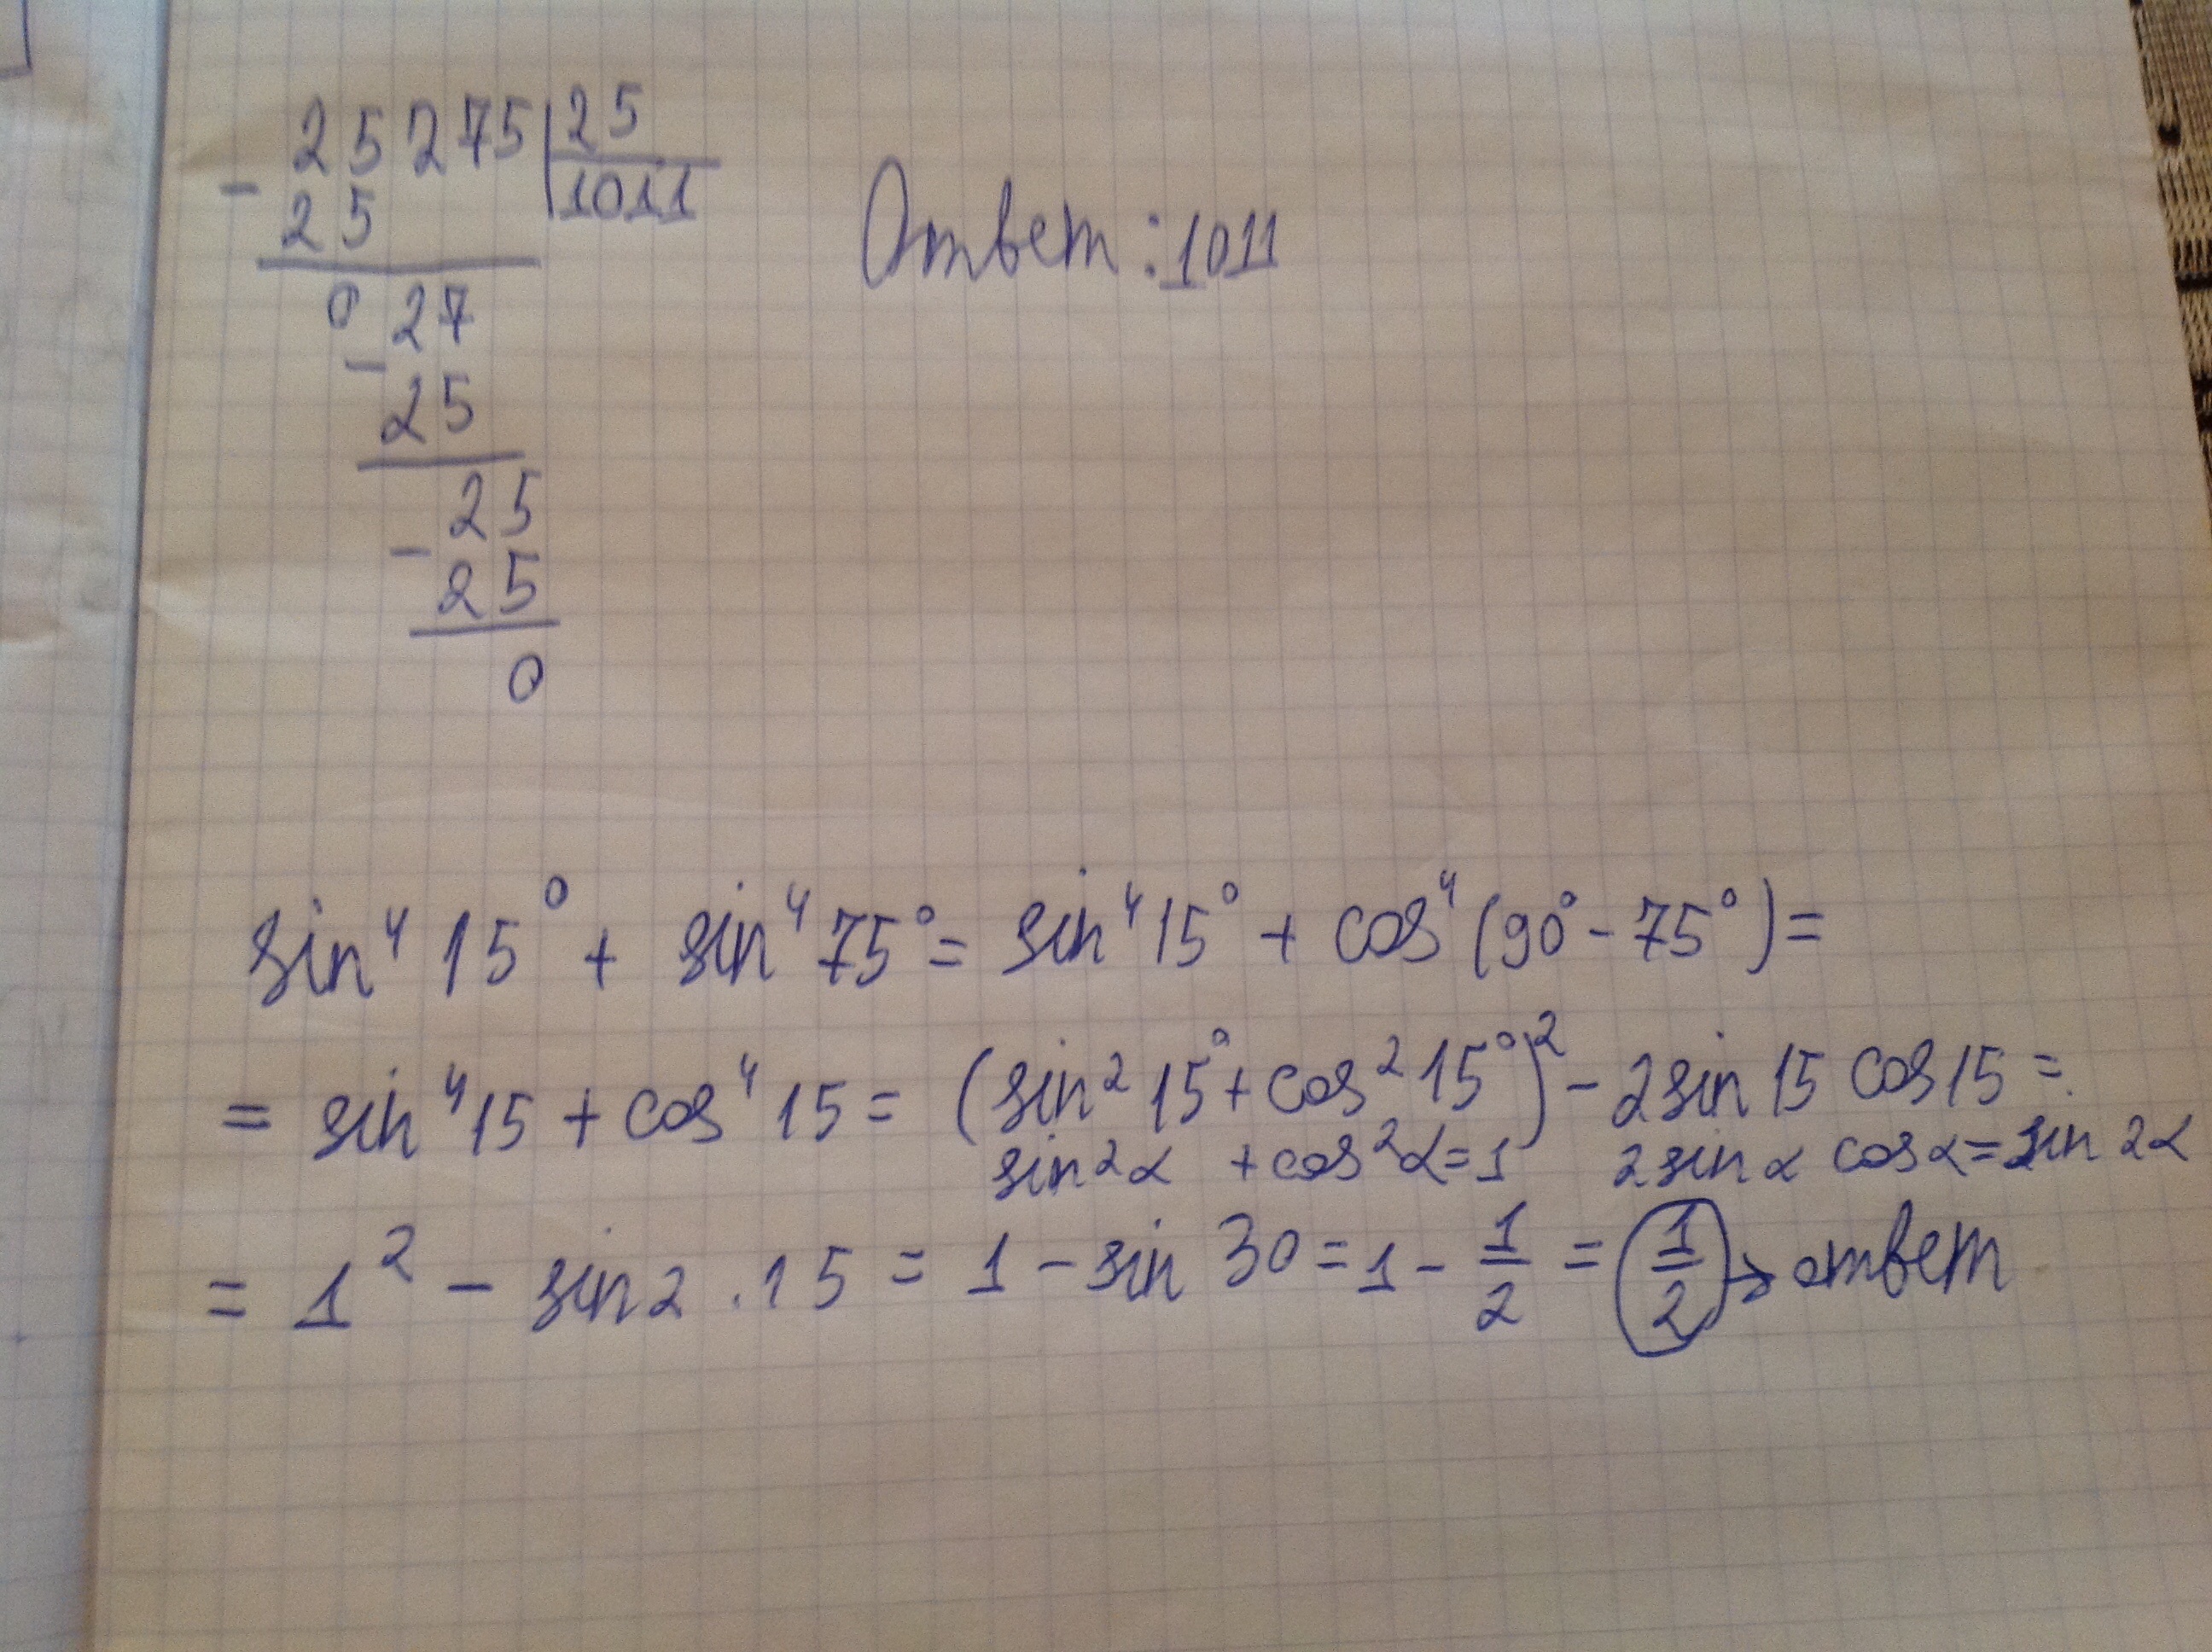 25275 | 25
- 25 | 1011
0 27
- 25
25
- 25
0
Ответ: 1011
sin⁴ 15° + sin⁴ 75° = sin⁴ 15° + cos⁴ (90° - 75°) =
= sin⁴ 15 + cos⁴ 15 = (sin² 15° + cos² 15°)² - 2 sin 15 cos 15 =
sin²α + cos²α = 1 2 sin α cos α = sin 2α
= 1² - sin 2 · 15 = 1 - sin 30 = 1 - 1/2 = 1/2 → ответ